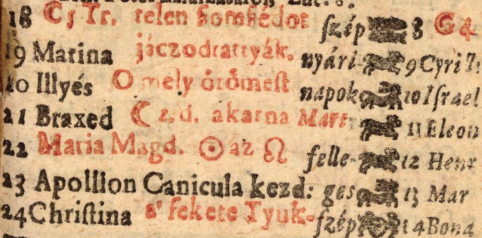 18 ☾ Tr. telen ſomſédot ſzép 8 G
19 Marina jáczodtattyák. nyári 9 Cyri
20 Illyés O mely örömeſt napok 10 Iſrael
21 Braxed ☾ 2. d. akarna Mart 11 Eleon
22 Maria Magd. ☉ az ♌ felle- 12 Henr
23 Apollion Canicula kezd: ges 13 Mar
24 Chriſtina a' fekete Tyuk- ſzép 14 Bona